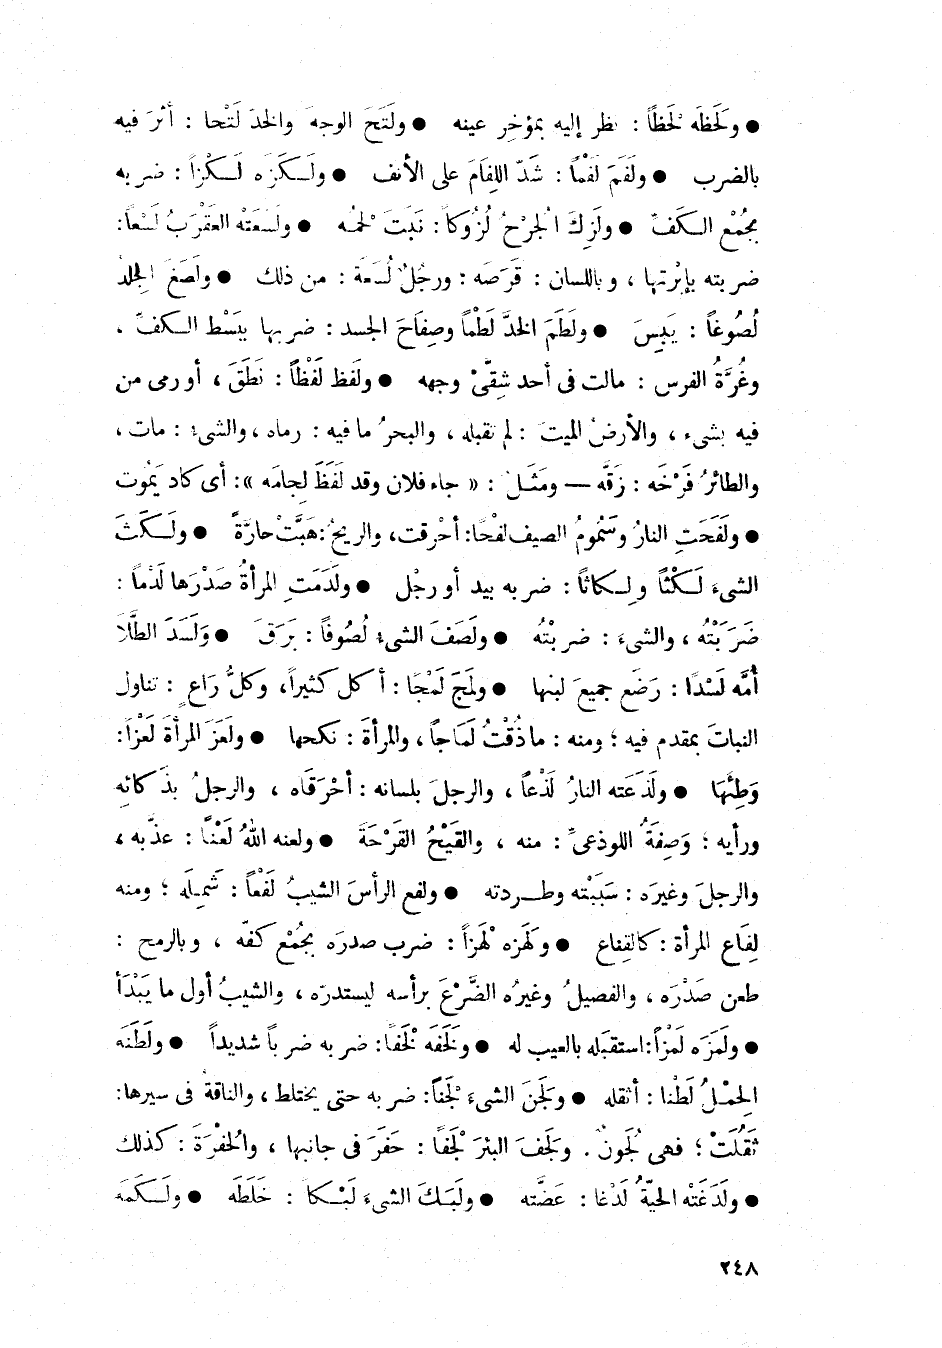 ● ولَحَظَه لَحْظاً : نظر إليه بمؤخِر عينه ● ولَتَحَ الوجهَ والخدَّ لَتْحا : أثرَ فيه
بالضرب ● ولَفَمَ لَفْماً : شَدّ اللِفَامَ على الأنف ● ولَكَزَه لَكْزاً : ضربه
بجُمْع الكَفّ ● ولَزِكَ الجُرْحُ لُزُوكاً : نَبَتَ لحْمُه ● ولَسَعَتْه العَقْرَبُ لَسْعاً :
ضربته بإبْرتها ، وباللسان : قَرَصَه : ورجُلٌ لُسَعَة : من ذلك ● ولَصَغَ الجِلدُ
لُصُوغاً : يَبِسَ ● ولَطَمَ الخدَّ لَطْماً وصِفَاحَ الجسد : ضربها ببَسْط الكفّ .
وغُرَّةُ الفرس : مالت فى أحد شِقَّىْ وجهه ● ولَفظ لَفْظاً : نَطَقَ ، أو رمى من
فيه بشىء ، والأرضُ الميتَ : لم تقبله ، والبحرُ ما فيه : رماه ، والشىءُ : مات ،
والطائرُ فَرْخَه : زَقَّه — ومَثَلٌ : « جاء فلان وقد لَفَظَ لجِامَه » : أى كاد يَمُوت
● ولَفَحَتِ النارُ وسَمُومُ الصيف لفْحًا : أحْرقت ، والريحُ : هَبَّتْ حارَّةً ● ولَكَثَ
الشىءَ لَكْثاً ولِكاثاً : ضربه بيد أو رِجْل ● ولَدَمَتِ المرأةُ صَدْرَها لَدْماً :
ضَرَبَتْه ، والشىءَ : ضربتْه ● ولَصَفَ الشىءُ لُصُوفاً : بَرَقَ ● ولَسَدَ الطَّلَا
أمَّه لَسْدًا : رَضَع جميعَ لبنها ● ولمَجَ لَمْجًا : أكل كثيراً ، وكلُّ رَاعٍ : تناول
النباتَ بمقدم فيه ؛ ومنه : ما ذُقْتُ لَمَاجاً ، والمرأةَ : نكحها ● ولَعَزَ المرأةَ لَعْزاً :
وَطِئَهَا ● ولَذَعَته النارُ لَذْعاً ، والرجلَ بلسانه : أحْرَقَاه ، والرجلُ بذَكائه
ورأيه ؛ وَصِفَةُ اللوذعىّ : منه ، والقَيْحُ القَرْحَةَ ● ولعنه اللهُ لَعْنًا : عذّبه ،
والرجلَ وغيرَه : سَبَبْته وطردته ● ولفع الرأسَ الشيبُ لَفْعاً : شَمِلَه ؛ ومنه
لِفَاع المرأة : كالقِناع ● ولَهَزه لَهْزاً : ضرب صدرَه بجُمْع كفّه ، وبالرمح :
طعن صَدْرَه ، والفصيلُ وغيرُه الضَّرْعَ برأسه ليستدرّه ، والشيبُ أول ما يَبْدَأ
● ولَمَزَه لَمْزاً : استقبَله بالعيب له ● ولَخَفَه لَخْفًا : ضربه ضرباً شديداً ● ولَطَنَه
الحِمْلُ لَطْنا : أثقله ● ولَجَنَ الشىءَ لَجْناً : ضربه حتى يختلط ، والناقة فى سيرها :
ثَقُلَتْ ؛ فهى لَجُونٌ . ولَجَفَ البئرَ لَجْفًا : حَفَرَ فى جانبها ، والحُفْرَةَ : كذلك
● ولَدَغَتْه الحيّةُ لَدْغا : عَضَّته ● ولَبَكَ الشىءَ لَبْكا : خَلَطَه ● ولَكَمَه
٢٤٨